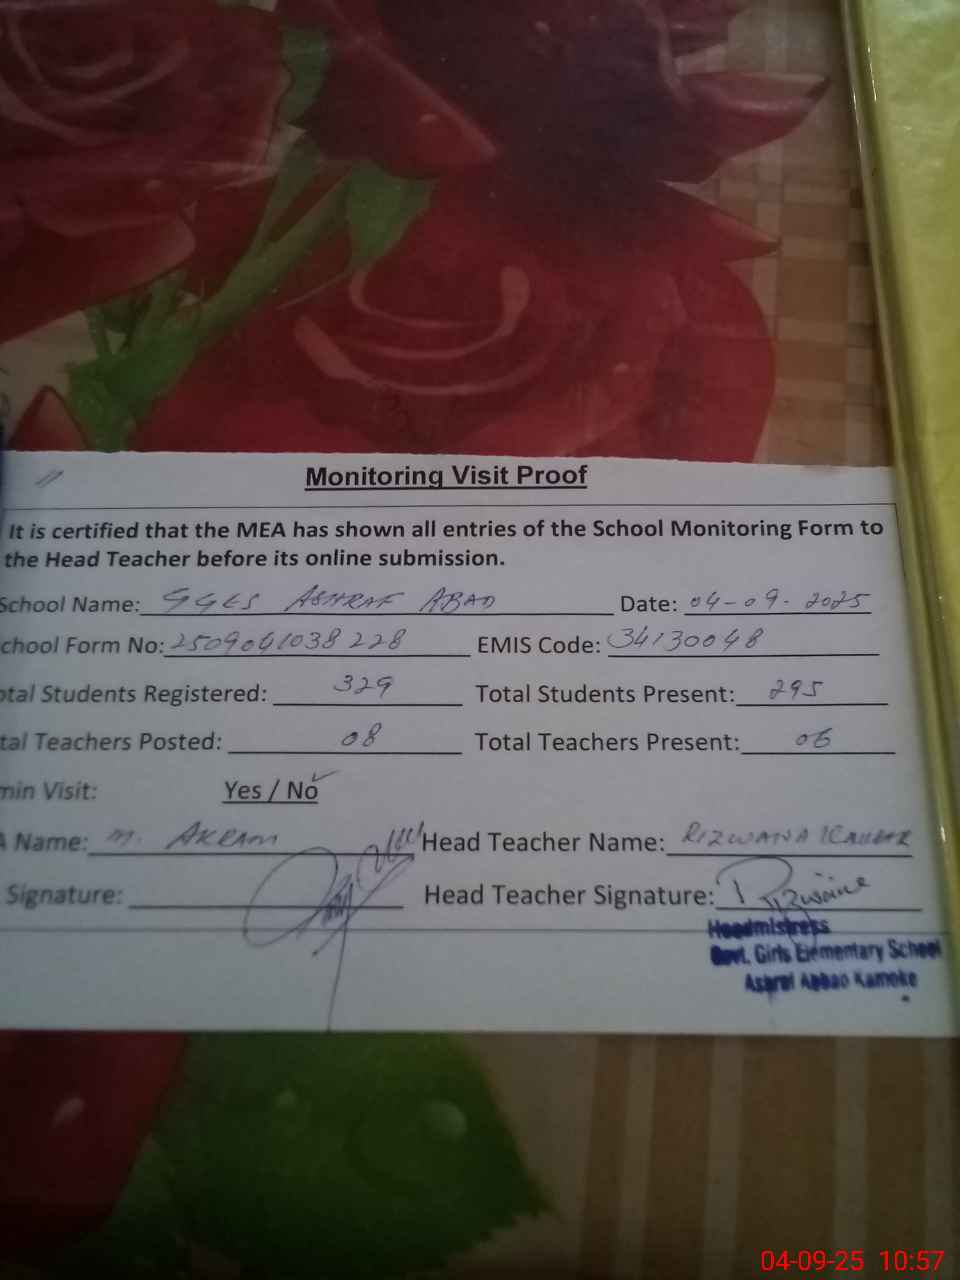 Monitoring Visit Proof
It is certified that the MEA has shown all entries of the School Monitoring Form to
the Head Teacher before its online submission.
School Name: GGES ASHRAF ABAD Date: 04-09-2025
chool Form No: 2509041038228 EMIS Code: 34130048
otal Students Registered: 329 Total Students Present: 295
tal Teachers Posted: 08 Total Teachers Present: 06
min Visit: Yes / No
A Name: M. AKRAM Head Teacher Name: RIZWANA KAUSAR
Signature: Head Teacher Signature: Rizwana
Headmistress
Govt. Girls Elementary School
Asharaf Abbad Kamoke
04-09-25 10:57